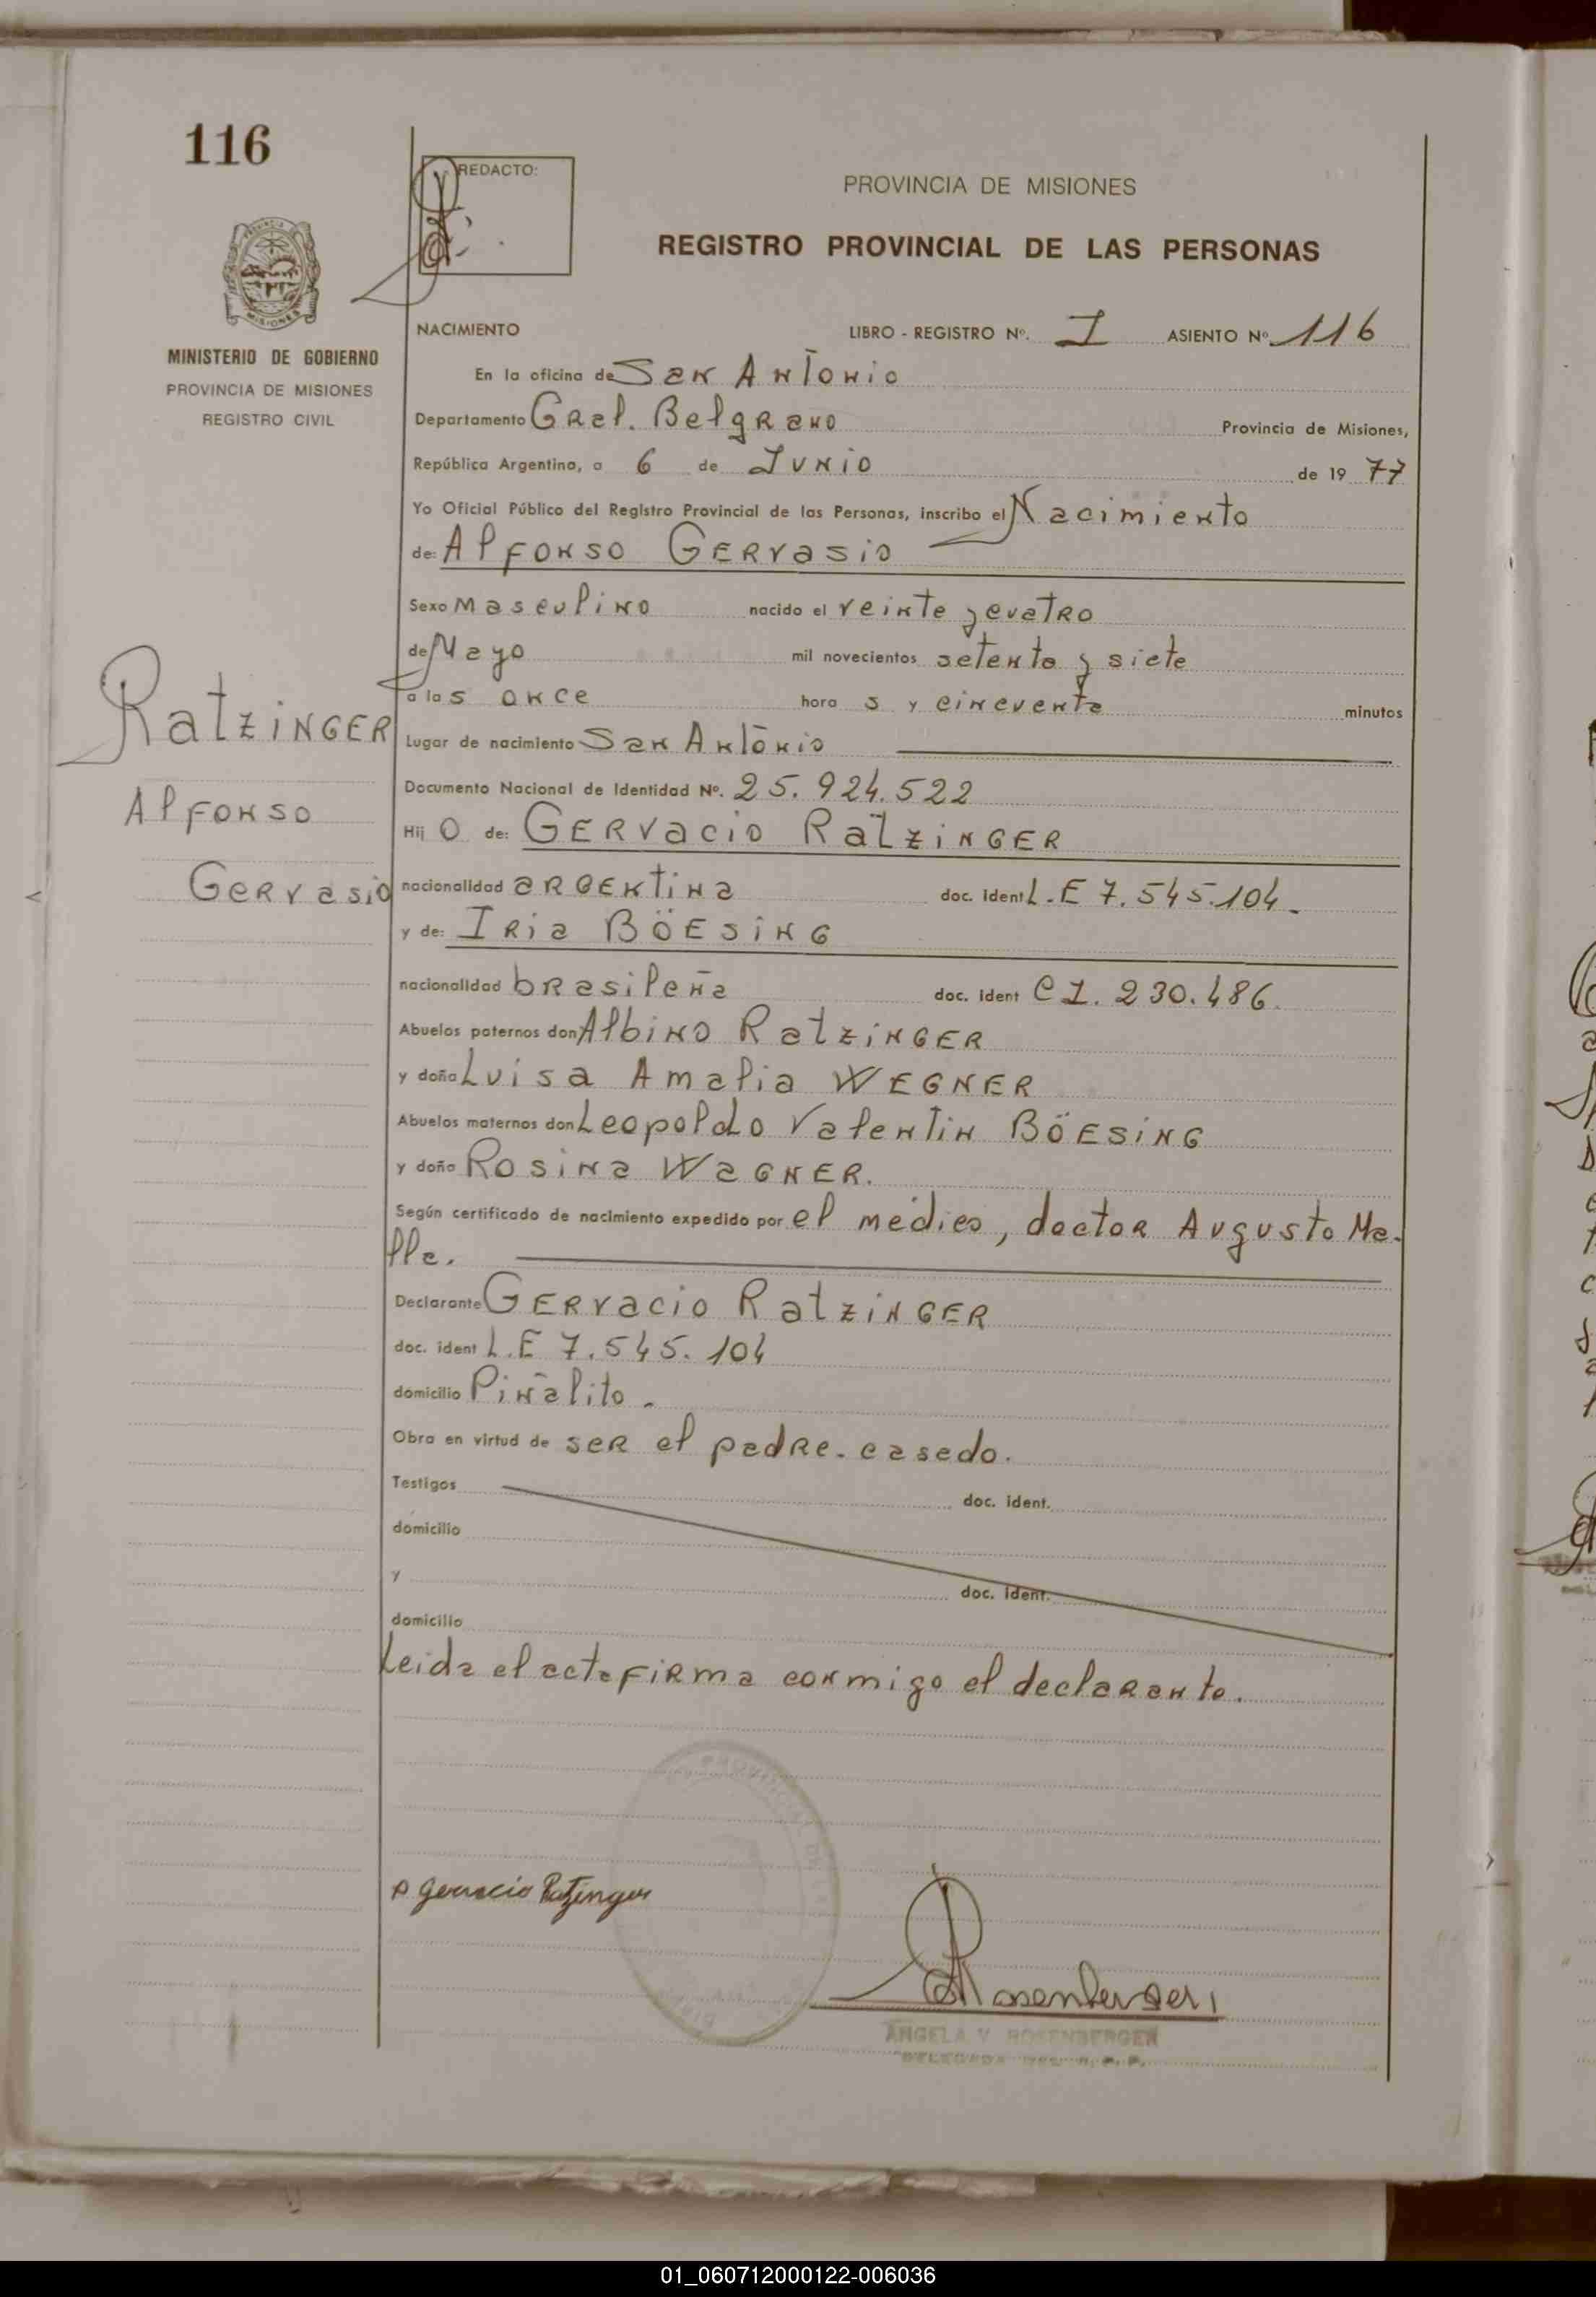 116
REDACTO:
PROVINCIA DE MISIONES
REGISTRO PROVINCIAL DE LAS PERSONAS
MISIONES
MINISTERIO DE GOBIERNO
PROVINCIA DE MISIONES
REGISTRO CIVIL
NACIMIENTO LIBRO - REGISTRO Nº. I ASIENTO Nº 116
En la oficina de San Antonio
Departamento Gral. Belgrano Provincia de Misiones,
República Argentina, a 6 de Junio de 19 77
Yo Oficial Público del Registro Provincial de las Personas, inscribo el Nacimiento
de: Alfonso Gervasio
Sexo Masculino nacido el veinte y cuatro
de Mayo mil novecientos setenta y siete
a las once hora s y cincuenta minutos
Ratzinger
Alfonso
Gervasio
Lugar de nacimiento San Antonio
Documento Nacional de Identidad Nº. 25.924.522
Hij o de: Gervacio Ratzinger
nacionalidad argentina doc. ident L.E 7.545.104.
y de: Iria Böesing
nacionalidad brasileña doc. ident C I. 230.486.
Abuelos paternos don Albino Ratzinger
y doña Luisa Amalia Wegner
Abuelos maternos don Leopoldo Valentin Böesing
y doña Rosina Wagner.
Según certificado de nacimiento expedido por el médico, doctor Augusto Ma-
lla.
Declarante Gervacio Ratzinger
doc. ident L.E 7.545.104
domicilio Piñalito.
Obra en virtud de ser el padre. casado.
Testigos doc. ident.
domicilio
y doc. ident.
domicilio
Leida el acta firma conmigo el declarante.
Gervacio Ratzinger
Rosenberger
ANGELA V. ROSENBERGER
DELEGADA DEL R. P. P.
01_060712000122-006036